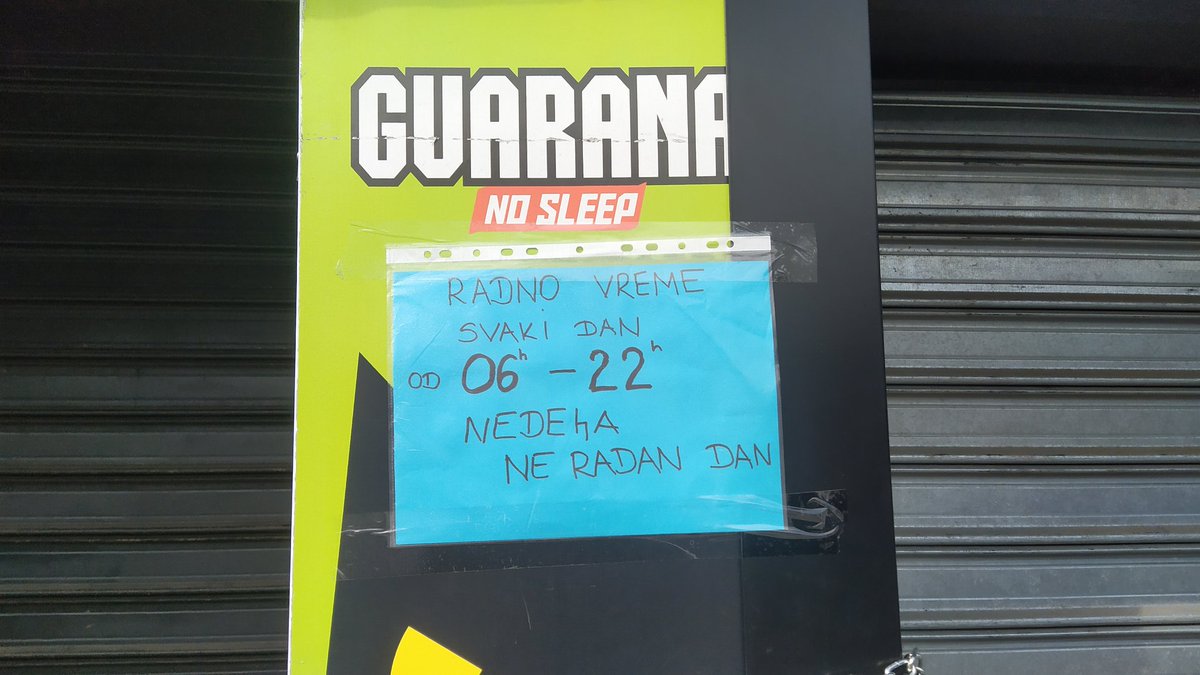 GUARANA
NO SLEEP
RADNO VREME
SVAKI DAN
OD 06h - 22h
NEDELJA
NE RADAN DAN